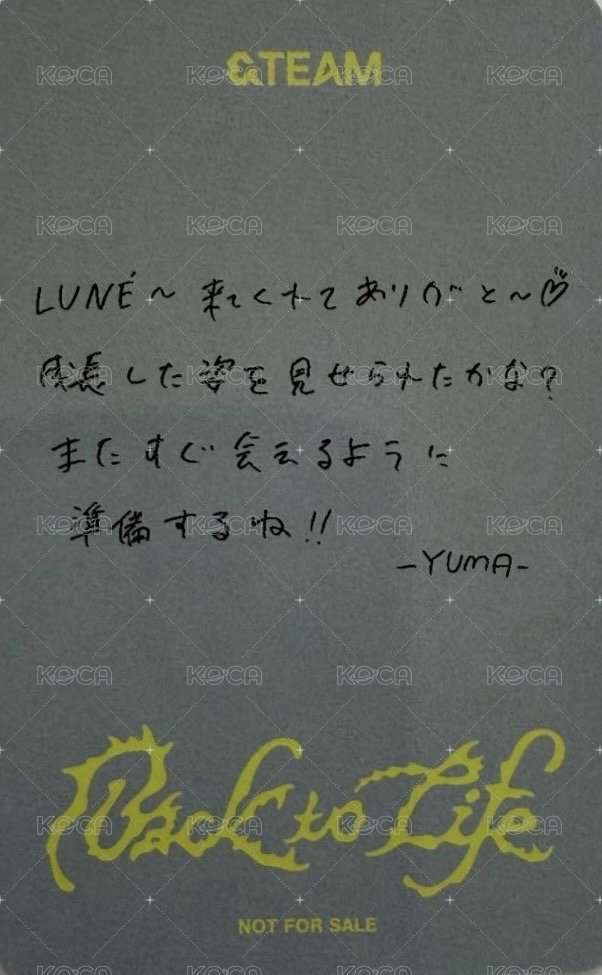 &TEAM
LUNÉ～ 来てくれてありがと～♡
成長した姿を見せられたかな？
またすぐ会えるように
準備するね!!
-YUMA-
Back to Life
NOT FOR SALE
KOCA